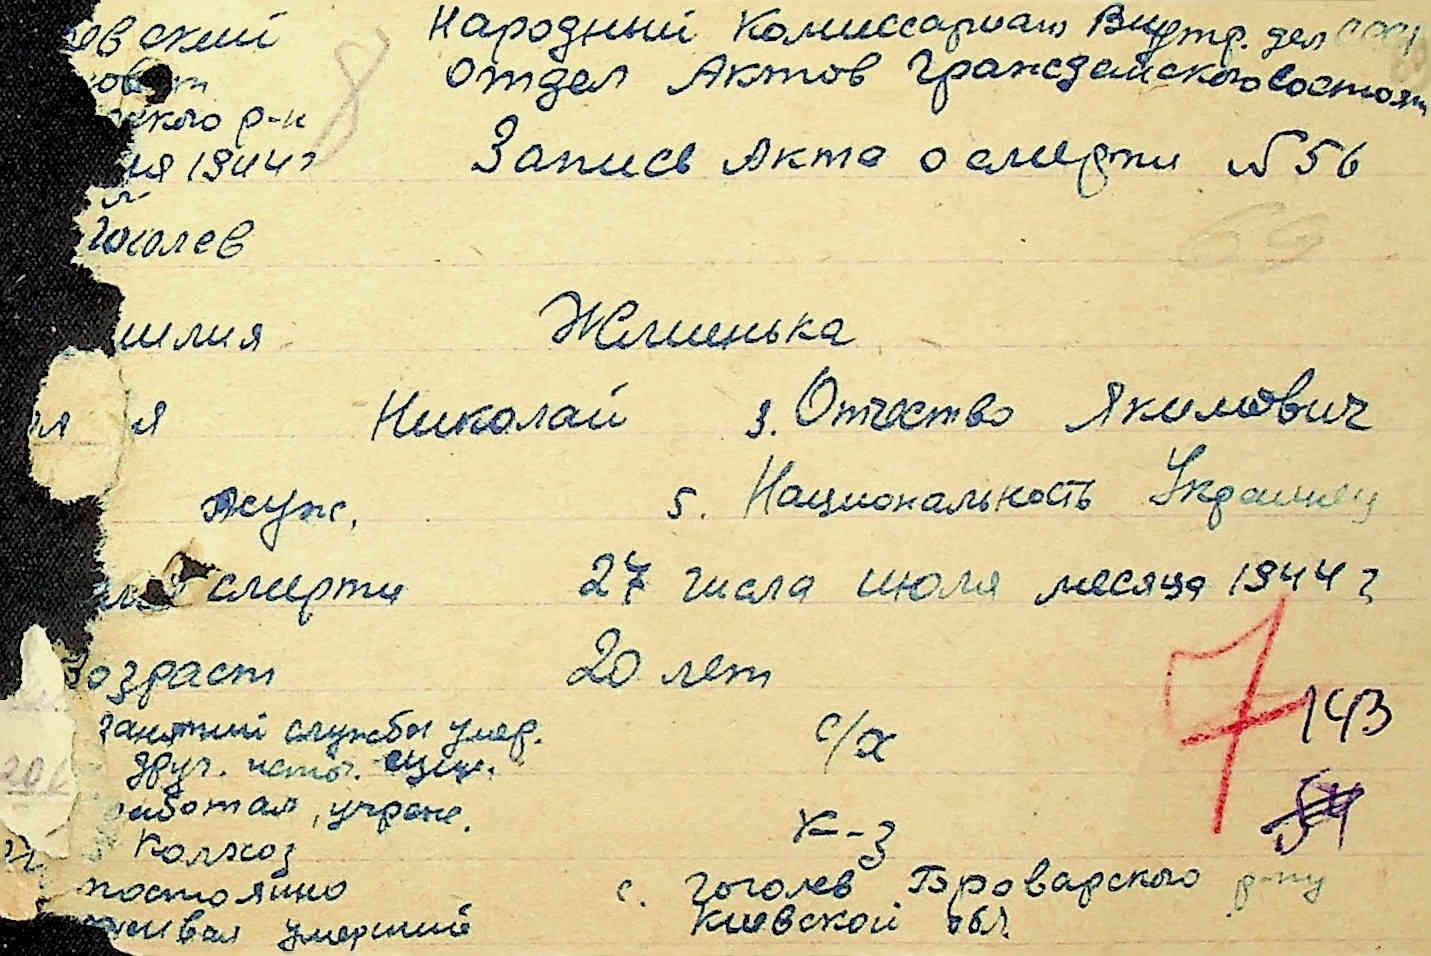 евский Народный Комиссариат Внутр. дел СССР
совет Отдел Актов Гражданского Состоян
ского р-н
ля 1944 г Запись Акта о смерти № 56
Гоголев
69
милия Жминька
мя Николай 3. Отчество Якимович
муж. 5. Национальность Украинец
смерти 27 числа июля месяца 1944 г
Возраст 20 лет
7 143
занятий службы умер. с/х
друг. источ. сущ.
54
работал, учреж. к-з
Колхоз
постоянно с. Гоголев Броварского р-ну
живал умерший Киевской обл.